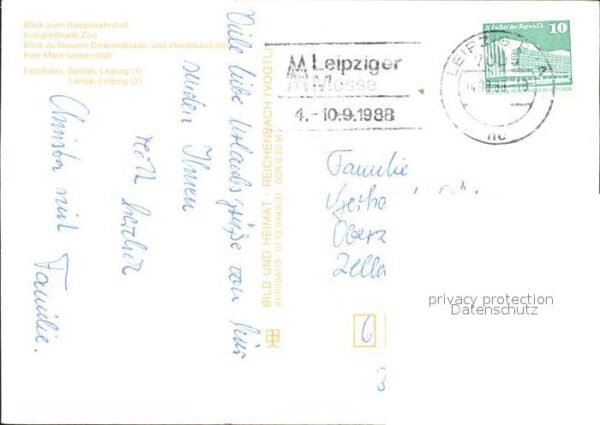 Blick zum Hauptbahnhof
Kongreßhalle Zoo
Blick zu Neuem Gewandhaus und Hochhaus der
Karl-Marx-Universität
Farbfotos: Boden, Leipzig (1)
Lange, Leipzig (2)
Viele liebe Urlaubsgrüße von hier
senden Ihnen
recht herzlich
Christa mit Familie.
BILD UND HEIMAT · REICHENBACH (VOGTL)
DDR 0,20 M
Leipziger
Messe
4.-10.9.1988
LEIPZIG
Palast der Republik
10
Familie
Zella
6
privacy protection
Datenschutz